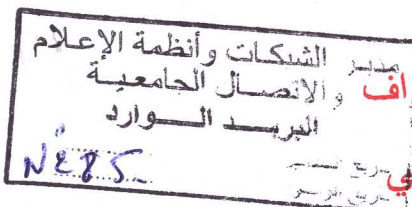 مدير الشبكات وأنظمة الإعلام
والاتصال الجامعية
اف
البريد الوارد
N° 285
ي